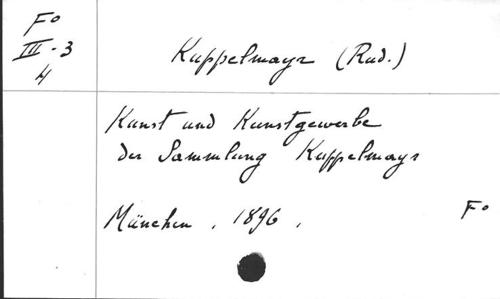 Fo
III-3
4
Kuppelmayr (Rud.)
Kunst und Kunstgewerbe
der Sammlung Kuppelmayr
München, 1896,
Fo